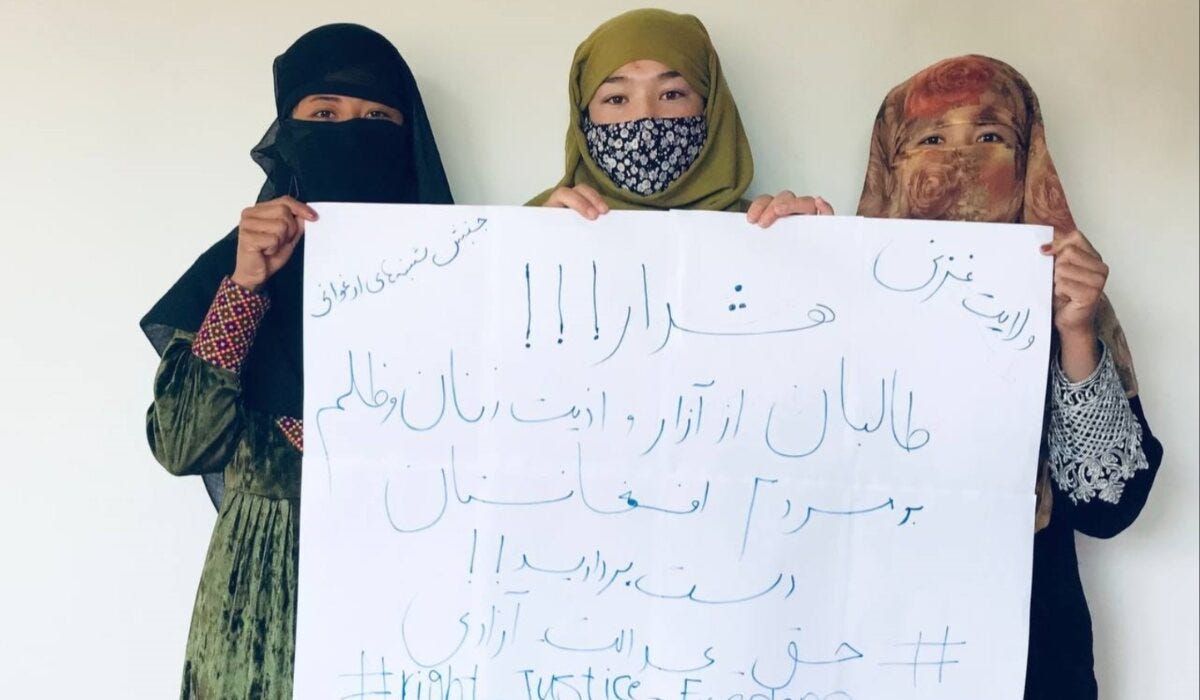 ولایت غزنی
جنبش شنبه‌های ارغوانی
هشدار!!!
طالبان از آزار و اذیت زنان و ظلم
بر مردم افغانستان
دست بردارید!!
# حق_عدالت_آزادی
#right_Justice_Freedom